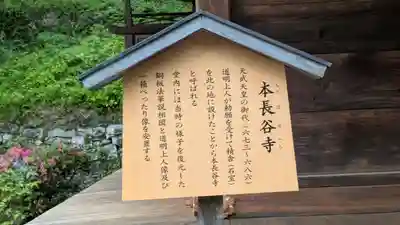 本長谷寺
天武天皇の御代(六七三~六八六)
道明上人が勅願を受けて精舎(石室)
を此の地に設けたことから本長谷寺
と呼ばれる
堂内には当時の様子を復元した
銅板法華説相図と道明上人像及び
一積べったり像を安置する